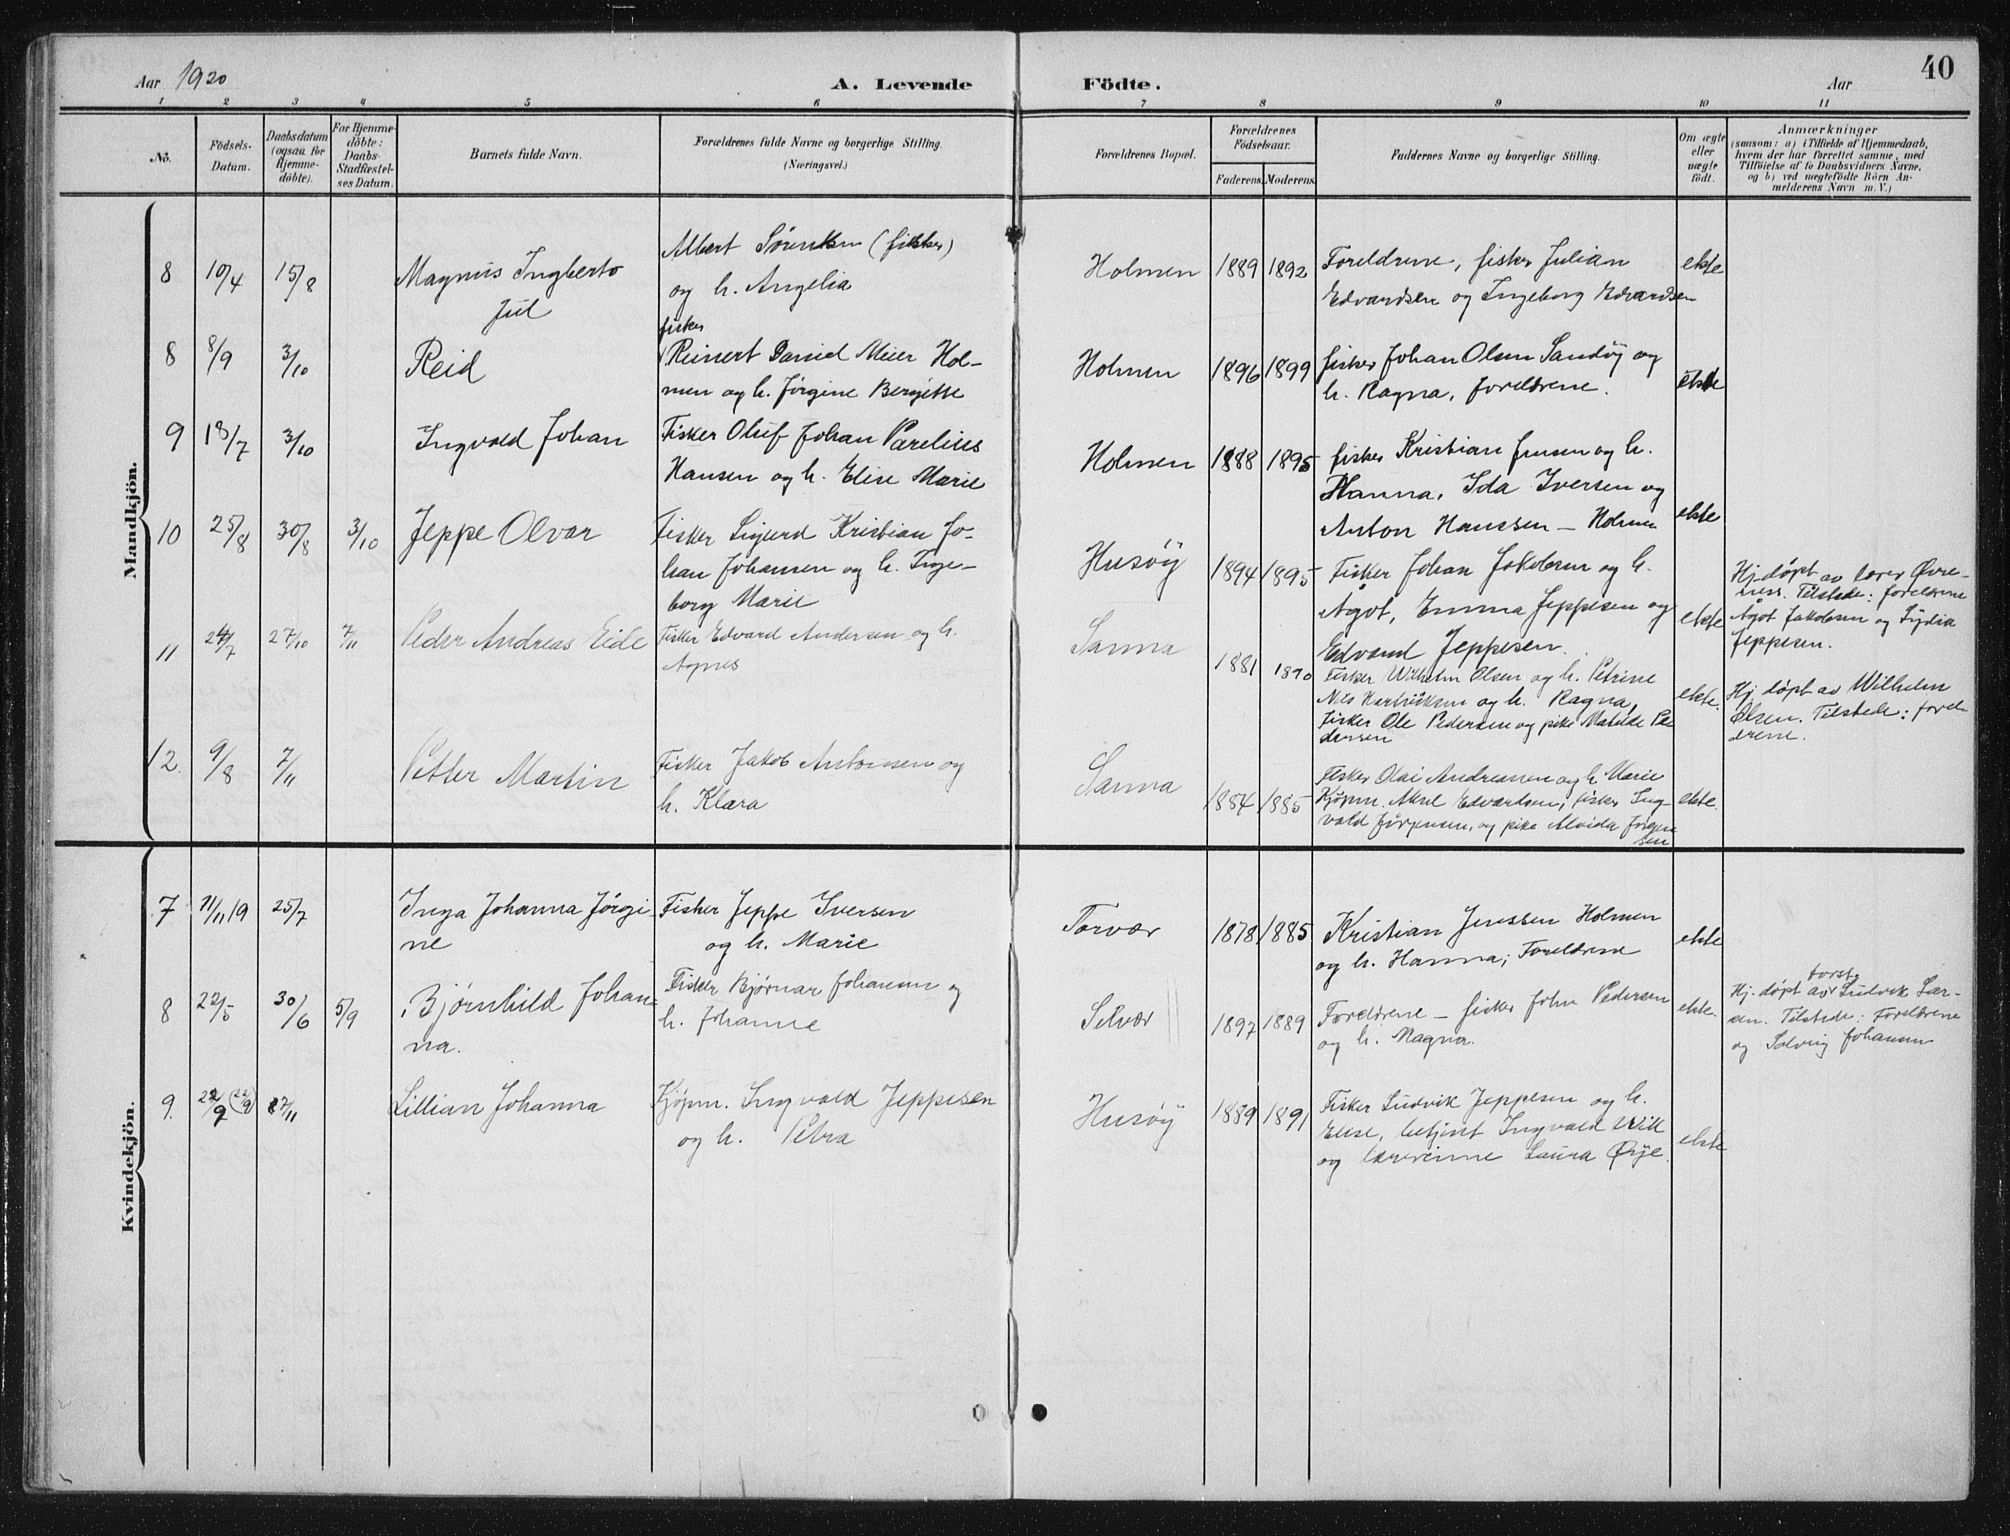 40
Aar 1920
A. Levende Födte.
Aar
1 2 3 4 5 6 7 8 9 10 11
No.
Födsels-
Datum.
Daabsdatum
(ogsaa for
Hjemme-
döbte).
For Hjemme-
döbte:
Daabs-
Stadfæstel-
ses Datum.
Barnets fulde Navn.
Forældrenes fulde Navne og borgerlige Stilling.
(Næringsvei.)
Forældrenes Bopæl.
Forældrenes
Födselsaar.
Faderens. Moderens.
Faddernes Navne og borgerlige Stilling.
Om ægte
eller
uægte
födt.
Anmærkninger
(saasom: a) i Tilfælde af Hjemmedaab,
hvem der har forrettet samme, med
Tilföielse af to Daabsvidners Navne,
og b) ved uægtefödte Börn An-
melderens Navn m. V.)
Mandkjön.
8 10/4 15/8
Magnus Ingberto
Jul
Albert Sørensen (fisker)
og h. Angelia
Holmen 1889 1892
Foreldrene, fisker Julian
Edvardsen og Ingeborg Edvardsen
ekte
8 8/9 3/10
Reid
fisker
Reinert Daniel Meier Hol-
men og h. Jørgine Bergitte
Holmen 1896 1899
fisker Johan Olsen Sandøy og
h. Ragna, foreldrene.
ekte
9 18/7 3/10
Ingvald Johan
Fisker Oluf Johan Parelius
Hansen og h. Elise Marie
Holmen 1888 1895
fisker Kristian Jensen og h.
Hanna, Ida Iversen og
Anton Hanssen – Holmen
ekte
10 25/8 30/8 3/10
Jeppe Olvar
Fisker Sigurd Kristian Jo-
han Johansen og h. Inge-
borg Marie
Husøy 1894 1895
Fisker Johan Jakobsen og h.
Ågot, Emma Jeppesen og
Edvard Jeppesen.
ekte
Hj.døpt av lærer Øvre-
ness. Tilstede: foreldrene
Ågot Jakobsen og Lydia
Jeppesen.
11 24/7 27/10 7/11
Peder Andreas Eide
Fisker Edvard Andersen og h.
Agnes
Sanna 1881
Fisker Wilhelm Olsen og h. Petrine
og h. Ragna,
fisker Ole Pedersen og pike Matilde Pe
dersen
ekte.
Hj. døpt av Wilhelm
Olsen. Tilstede: forel-
drene.
12. 9/8 7/11
Petter Martin
Fisker Jakob Antonsen og
h. Klara
Sanna 1884 1885
Fisker Olai Andreasen og h. Marie
Kjøpm. Aksel Edvardsen, fisker Ing-
vald Jørgensen, og pike Alvida Jørgen
sen
ekte.
Kvindekjön.
7 11/11 19 25/7
Inga Johanna Jörgi
ne
Fisker Jeppe Iversen
og h. Marie
Torvær 1878 1885
Kristian Jenssen Holmen
og h. Hanna; Foreldrene
ekte
8 22/5 30/6 5/9
Bjørnhild Johan-
na.
Fisker Bjørnar Johansen og
h. Johanne
Selvær 1897 1889
Foreldrene – fisker John Pedersen
og h. Magna.
ekte.
Hj. døpt av Ludvik Lar-
sen. Tilstede: Foreldrene
og Solveig Johansen
9. 22/9 (22/9) 7/11
Lillian Johanna
Kjøpm. Ingvald Jeppesen
og h. Petra
Husøy 1889 1891
Fisker Ludvik Jeppesen og h.
Elise, betjent Ingvald Wik
og lærerinne Laura Øye.
ekte